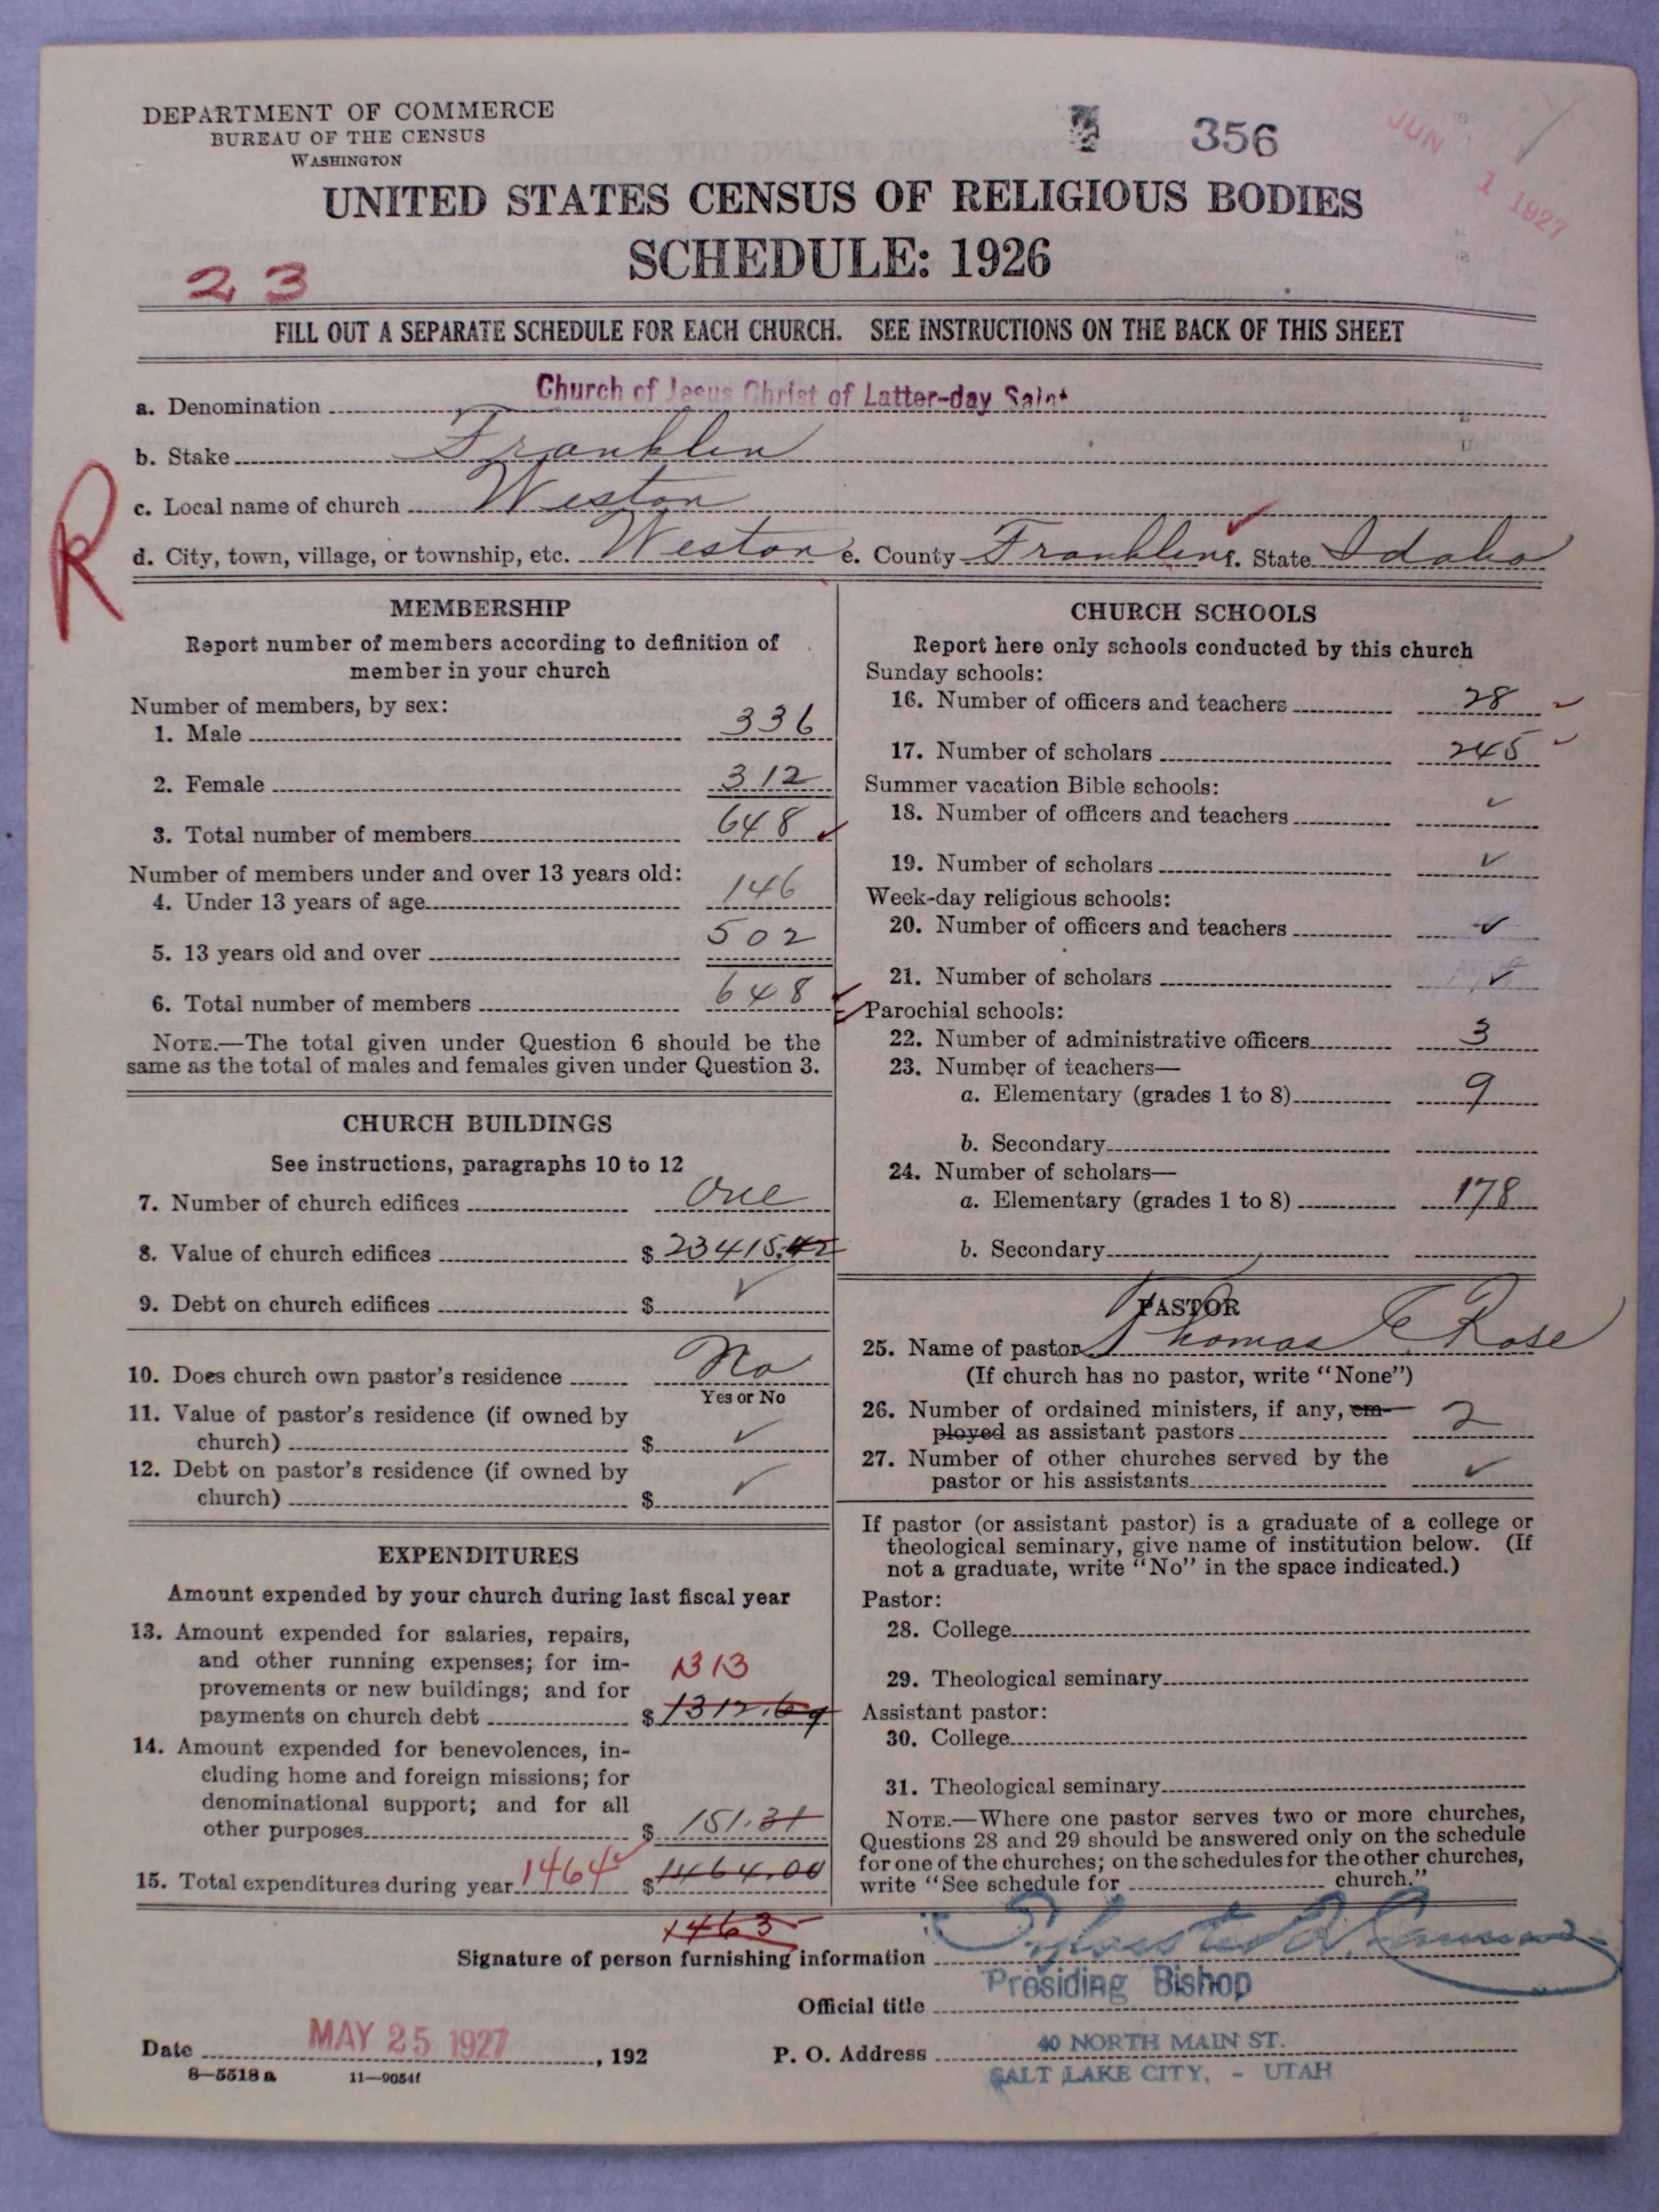 DEPARTMENT OF COMMERCE
BUREAU OF THE CENSUS
WASHINGTON
356
JUN 1 1927
UNITED STATES CENSUS OF RELIGIOUS BODIES
SCHEDULE: 1926
23
FILL OUT A SEPARATE SCHEDULE FOR EACH CHURCH. SEE INSTRUCTIONS ON THE BACK OF THIS SHEET
a. Denomination Church of Jesus Christ of Latter-day Saint
b. Stake Franklin
c. Local name of church Weston
R
d. City, town, village, or township, etc. Weston e. County Franklin f. State Idaho
MEMBERSHIP
Report number of members according to definition of
member in your church
Number of members, by sex:
1. Male 336
2. Female 312
3. Total number of members 648
Number of members under and over 13 years old:
4. Under 13 years of age 146
5. 13 years old and over 502
6. Total number of members 648
NOTE.—The total given under Question 6 should be the
same as the total of males and females given under Question 3.
CHURCH BUILDINGS
See instructions, paragraphs 10 to 12
7. Number of church edifices One
8. Value of church edifices $ 23415.42
9. Debt on church edifices $ ✓
10. Does church own pastor's residence No
Yes or No
11. Value of pastor's residence (if owned by
church) $ ✓
12. Debt on pastor's residence (if owned by
church) $ ✓
EXPENDITURES
Amount expended by your church during last fiscal year
13. Amount expended for salaries, repairs,
and other running expenses; for im-
provements or new buildings; and for 1313
payments on church debt $ 1312.69
14. Amount expended for benevolences, in-
cluding home and foreign missions; for
denominational support; and for all
other purposes $ 151.31
15. Total expenditures during year 1464 $ 1464.00
1463
CHURCH SCHOOLS
Report here only schools conducted by this church
Sunday schools:
16. Number of officers and teachers 28
17. Number of scholars 245
Summer vacation Bible schools:
18. Number of officers and teachers ✓
19. Number of scholars ✓
Week-day religious schools:
20. Number of officers and teachers ✓
21. Number of scholars ✓
Parochial schools:
22. Number of administrative officers 3
23. Number of teachers—
a. Elementary (grades 1 to 8) 9
b. Secondary
24. Number of scholars—
a. Elementary (grades 1 to 8) 178
b. Secondary
PASTOR
25. Name of pastor Thomas E Rose
(If church has no pastor, write "None")
26. Number of ordained ministers, if any, em-
ployed as assistant pastors 2
27. Number of other churches served by the
pastor or his assistants ✓
If pastor (or assistant pastor) is a graduate of a college or
theological seminary, give name of institution below. (If
not a graduate, write "No" in the space indicated.)
Pastor:
28. College
29. Theological seminary
Assistant pastor:
30. College
31. Theological seminary
NOTE.—Where one pastor serves two or more churches,
Questions 28 and 29 should be answered only on the schedule
for one of the churches; on the schedules for the other churches,
write "See schedule for church."
Signature of person furnishing information Sylvester Q. Cannon
Official title Presiding Bishop
Date MAY 25 1927, 192
P. O. Address 40 NORTH MAIN ST.
SALT LAKE CITY, - UTAH
8—5518 a 11—9054f